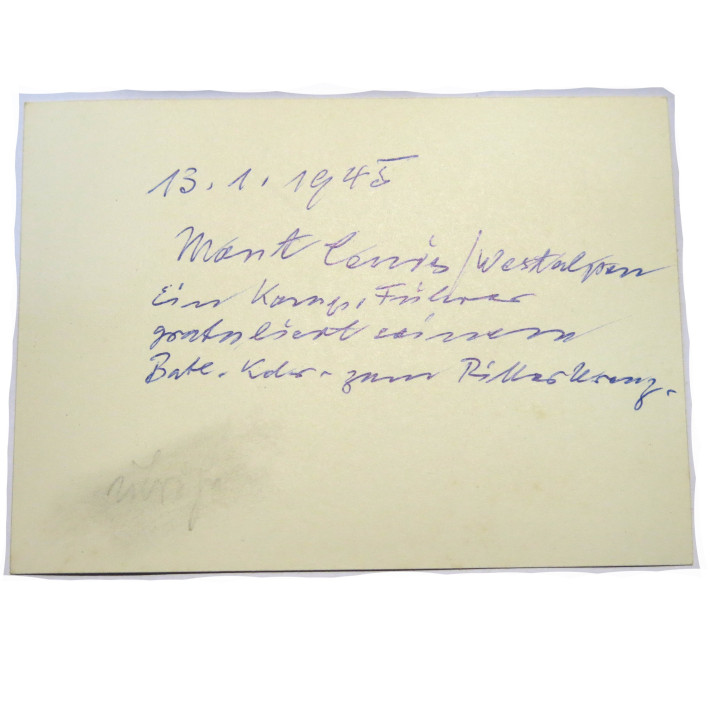 13.1.1945
Mont Cenis/Westalpen
Ein Komp. Führer
gratuliert seinem
Batl.-Kdr. zum Ritterkreuz.